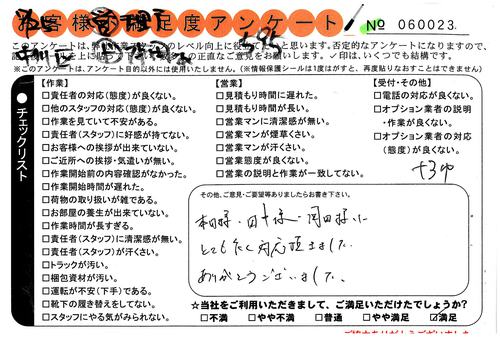 お客様満足度アンケート
№ 060023
このアンケートは、弊社作業スタッフのレベル向上に役立てたいと思います。否定的なアンケートになりますので、
正直なご意見をお願いします。✓印は、いくつでも結構です。
※このアンケートは、アンケート目的以外には使用いたしません。(※情報保護シールは1度はがすと、再度貼りなおすことはできません)
●チェックリスト
【作業】
□責任者の対応(態度)が良くない。
□他のスタッフの対応(態度)が良くない。
□作業を見ていて不安がある。
□責任者(スタッフ)に好感が持てない。
□お客様への挨拶が出来ていない。
□ご近所への挨拶・気遣いが無い。
□作業開始前の内容確認がなかった。
□作業開始時間が遅れた。
□荷物の取り扱いが雑である。
□お部屋の養生が出来ていない。
□作業時間が長すぎる。
□責任者(スタッフ)に清潔感が無い。
□責任者(スタッフ)が汗くさい。
□トラックが汚い。
□梱包資材が汚い。
□運転が不安(下手)である。
□靴下の履き替えをしてない。
□スタッフにやる気がみられない。
【営業】
□見積もり時間に遅れた。
□見積もり時間が長い。
□営業マンに清潔感が無い。
□営業マンが煙草くさい。
□営業マンが汗くさい。
□営業態度が良くない。
□営業の説明と作業が一致してない。
【受付・その他】
□電話の対応が良くない。
□オプション業者の説明
・作業が良くない。
□オプション業者の対応
(態度)が良くない。
その他、ご意見・ご要望等ありましたらお書き下さい。
とても良く対応頂きました。
ありがとうございました。
☆当社をご利用いただきまして、ご満足いただけたでしょうか?
□不満 □やや不満 □普通 □やや満足 ☑満足
ご協力ありがとうございました